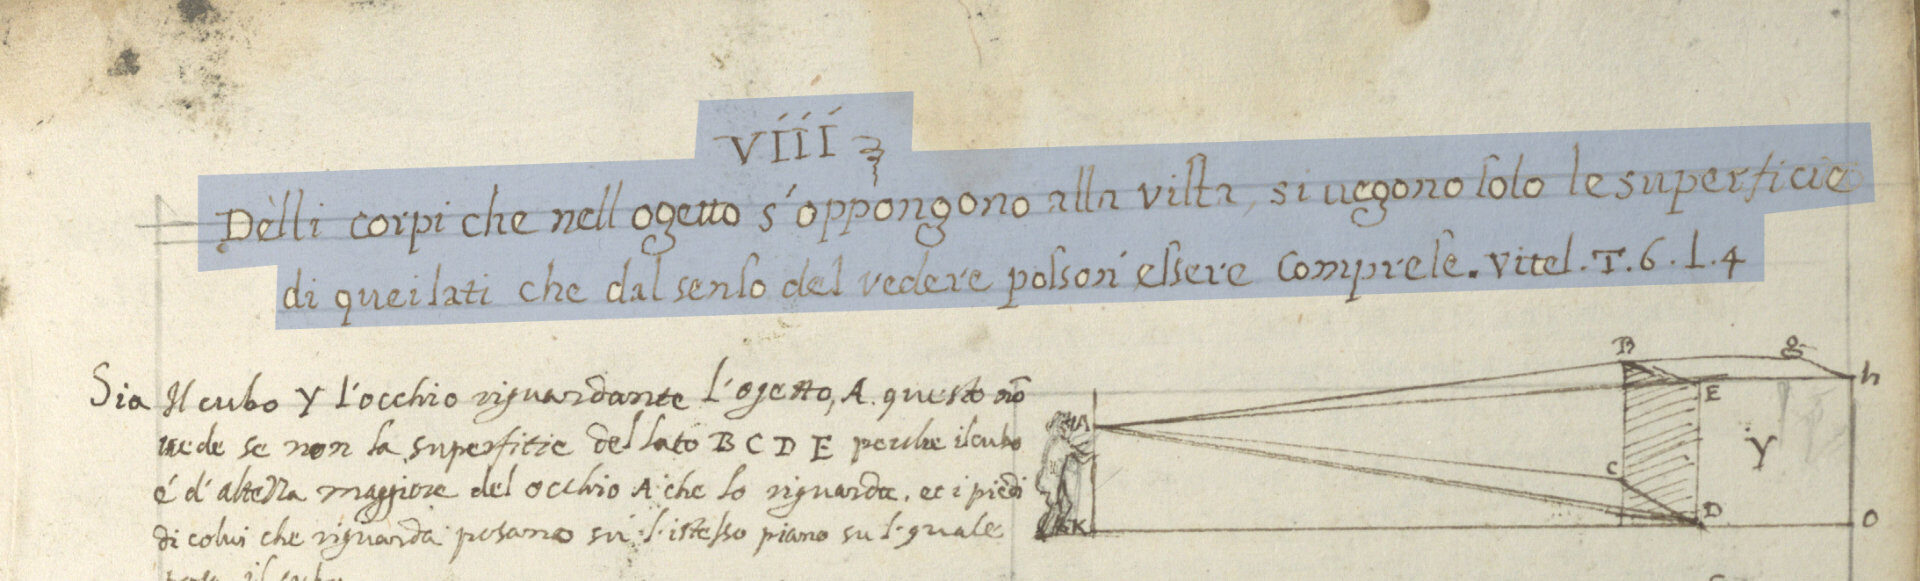 VIII
Dèlli corpi che nell ogetto s'oppongono alla vista, si uegono solo le superficie
di quei lati che dal senso del vedere posson' essere Comprese. Vitel. T. 6. l. 4
Sia Il cubo Y l'occhio riguardante l'ogetto, A. questo nō
uede se non la superfitie del lato B C D E perche il cubo
é d'altezza maggiore del occhio A che lo riguarda. et i piedi
di colui che riguarda posano sú l'istesso piano su l'quale
posa il cubo
B
g
h
E
A
Y
C
D
K
O